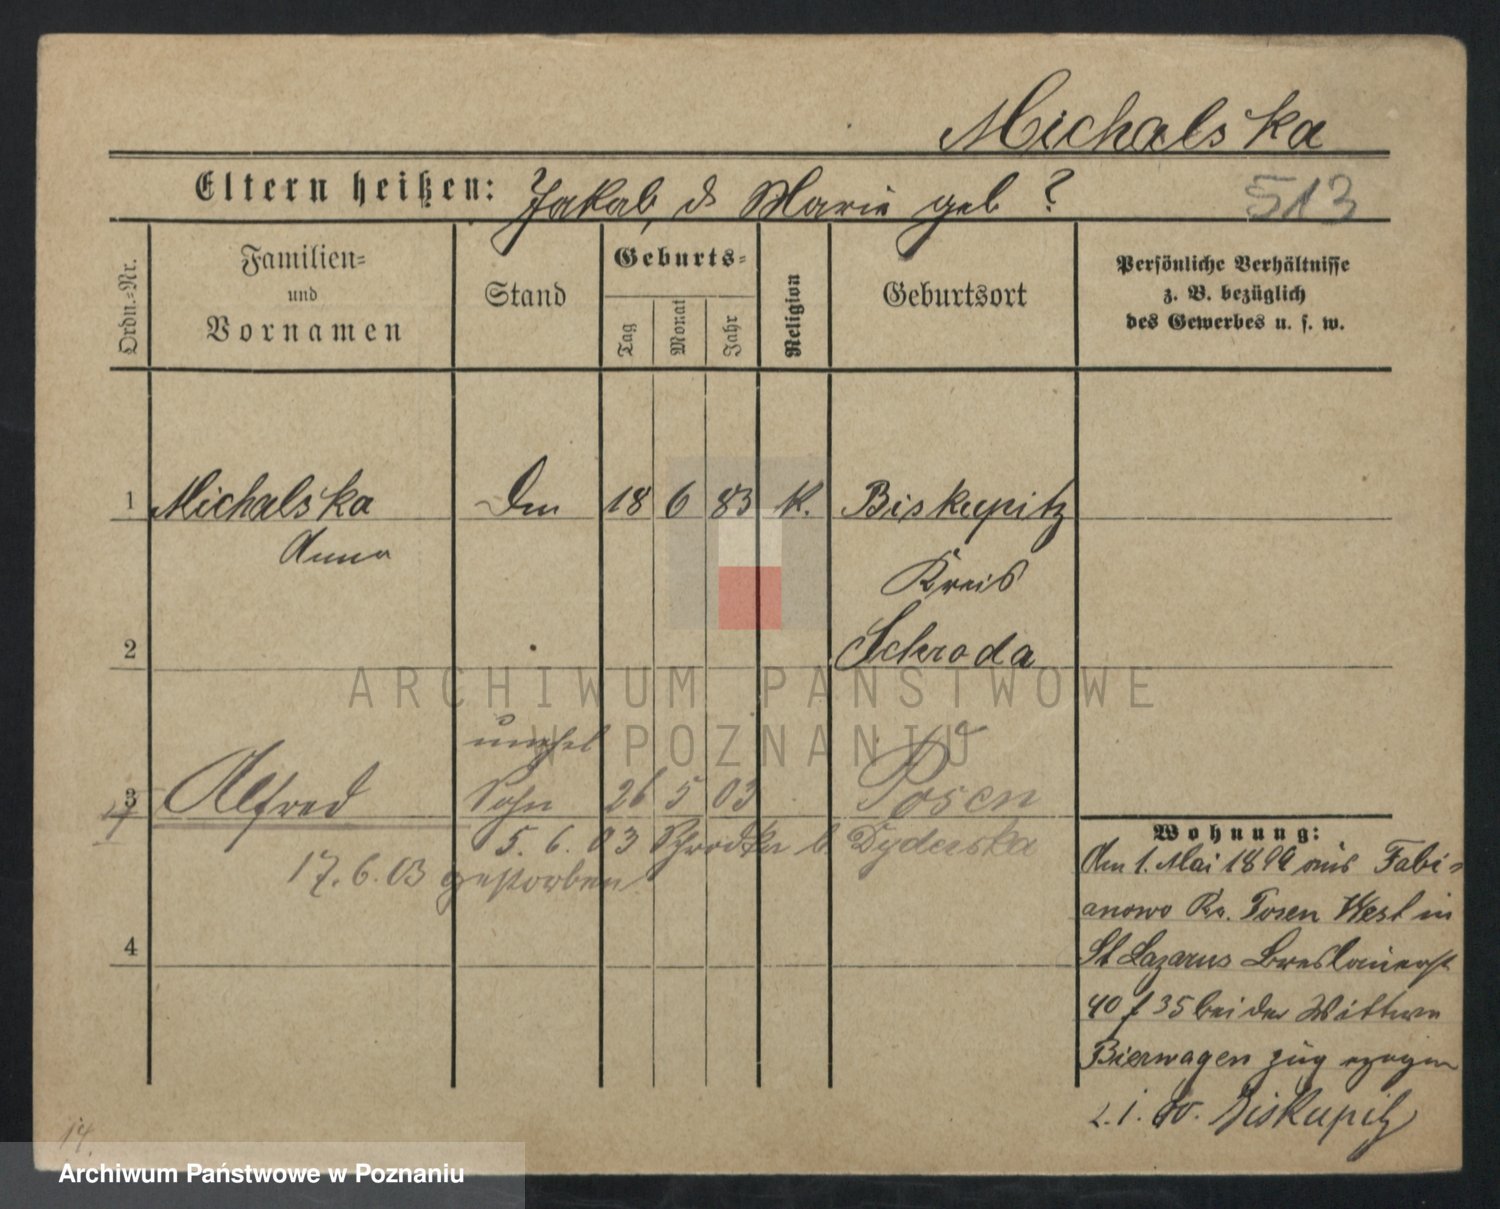 Michalska
Eltern heißen: Jakob, & Marie geb ?
513
Ordn.=Nr.
Familien=
und
Vornamen
Stand
Geburts=
Tag
Monat
Jahr
Religion
Geburtsort
Persönliche Verhältnisse
z. B. bezüglich
des Gewerbes u. s. w.
1 Michalska 18 6 83 K. Biskupitz
Anna
Kreis
2 Schroda
ARCHIWUM PAŃSTWOWE
W POZNANIU
unehel
3 Alfred Sohn 26 5 03 Posen
5. 6. 03 Schrodka b. Dyderska
17. 6. 03 gestorben.
4
Wohnung:
Am 1. Mai 1899 aus Fabi=
anowo Kr. Posen West in
St Lazarus Breslauerst
40 f 35 bei der Wittwe
Bierwagen zugezogen
2. 1. 00. Biskupitz
14.
Archiwum Państwowe w Poznaniu